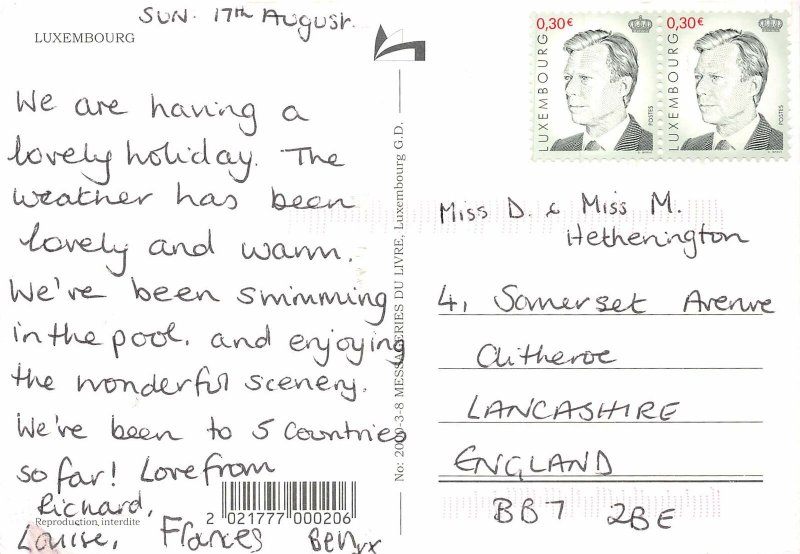 SUN. 17th August.
LUXEMBOURG
We are having a
lovely holiday. The
weather has been
lovely and warm.
We've been swimming
in the pool, and enjoying
the wonderful scenery.
We've been to 5 countries
so far! Love from
Richard,
Louise, Frances Ben xx
Reproduction interdite
2 021777 000206
No: 2000-3-8 MESSAGERIES DU LIVRE, Luxembourg G.D.
0,30€ LUXEMBOURG POSTES
0,30€ LUXEMBOURG POSTES
Miss D. & Miss M.
Hetherington
4, Somerset Avenue
Clitheroe
LANCASHIRE
ENGLAND
BB7 2BE